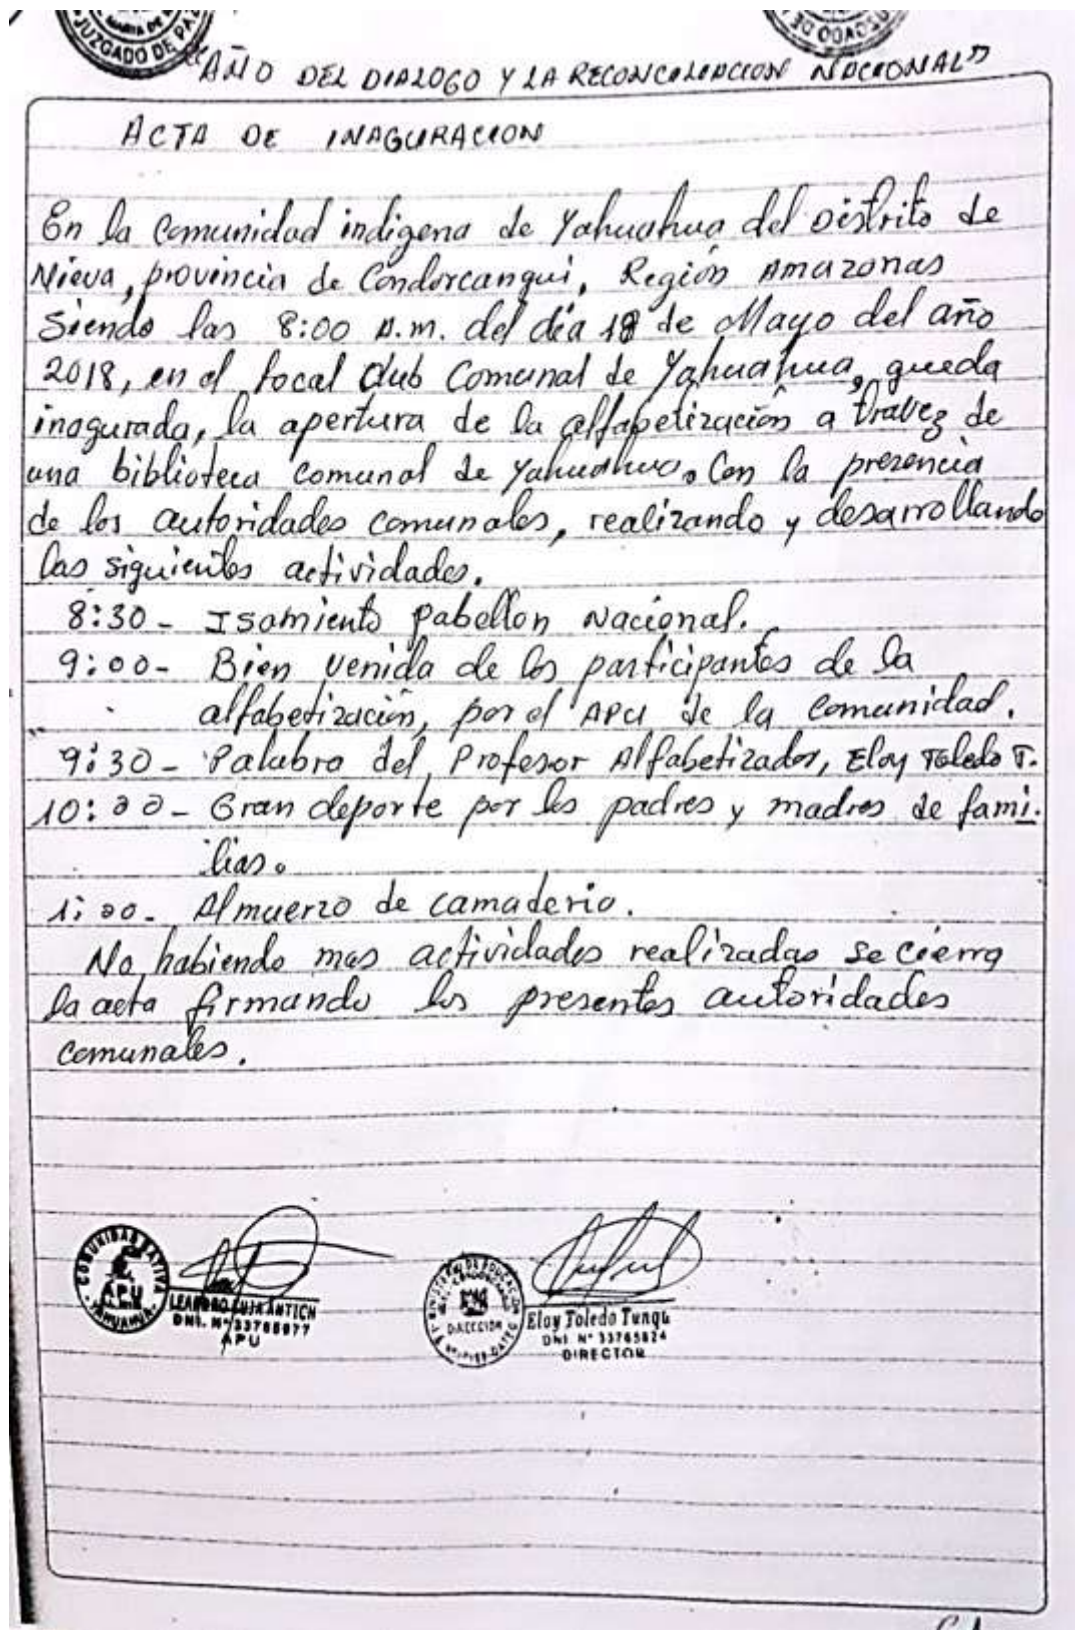 JUZGADO DE PAZ
JUZGADO DE
"AÑO DEL DIALOGO Y LA RECONCILIACION NACIONAL"
ACTA DE INAGURACION
En la Comunidad indigena de Yahuahua del Distrito de
Nieva, provincia de Condorcanqui, Región Amazonas
Siendo las 8:00 A.m. del día 18 de Mayo del año
2018, en el local Club Comunal de Yahuahua, queda
inagurada, la apertura de la alfabetización a travez de
una biblioteca comunal de Yahuahua. Con la presencia
de los autoridades comunales, realizando y desarrollando
las siguientes actividades.
8:30 - Isamiento pabellon Nacional.
9:00 - Bien venida de los participantes de la
alfabetización, por el APU de la Comunidad.
9:30 - Palabra del Profesor Alfabetizador, Eloy Toledo T.
10:00 - Gran deporte por los padres y madres de fami-
lias.
1:00 - Almuerzo de camaderio.
No habiendo mas actividades realizadas se cierra
la acta firmando los presentes autoridades
comunales.
COMUNIDAD NATIVA
APU
YAHUAHUA
ANTICH
DNI. N°
APU
DIRECCION
Eloy Toledo Tungu
DNI N° 33765824
DIRECTOR